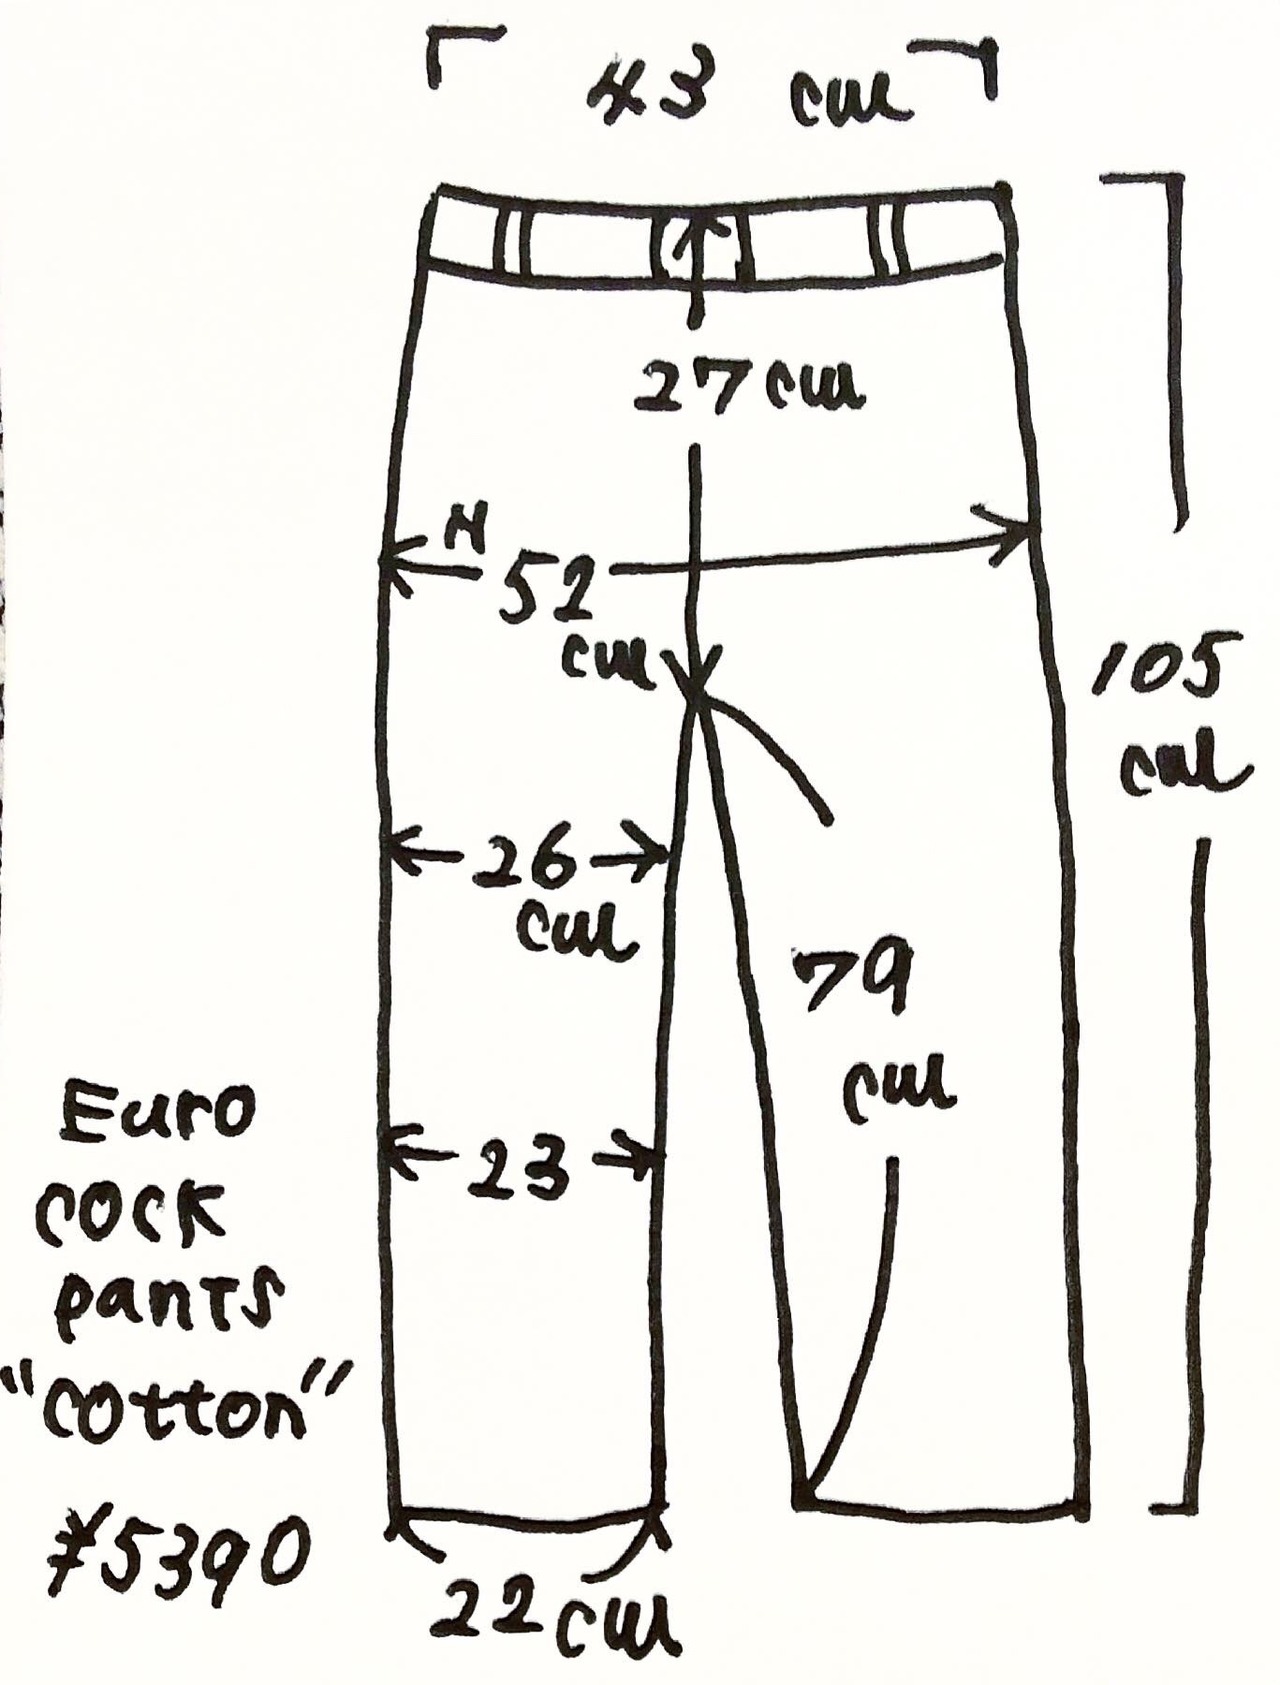 43 cm
27cm
H
52
cm
105
cm
26
cm
79
cm
23
Euro
cock
pants
"cotton"
¥5390
22cm